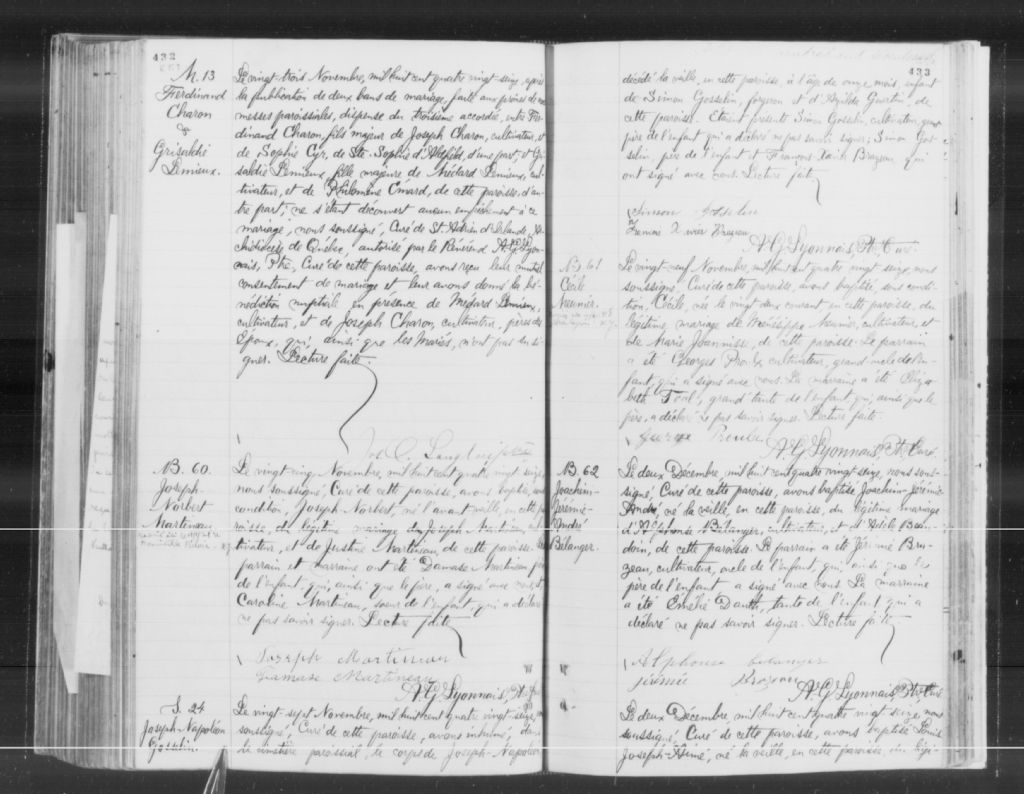 432
M. 13
Ferdinand
Charon
&
Grisaldie
Lemieux.
Le vingt-trois Novembre, mil huit cent quatre vingt-seize, après
la publication de deux bans de mariage, faite aux prônes de nos
messes paroissiales, dispense du troisième accordée, entre Fer-
dinand Charon, fils majeur de Joseph Charon, cultivateur, et
de Sophie Cyr, de Ste. Sophie d'Halifax, d'une part, et Gri-
saldie Lemieux, fille majeure de Médard Lemieux, cul-
tivateur, et de Philomène Émard, de cette paroisse, d'au-
tre part; ne s'étant découvert aucun empêchement à ce
mariage, nous soussigné, Curé de St. Adrien d'Irlande, Ar-
chidiocèse de Québec, autorisé par le Révérend A. G. Lyon-
nais, Ptre, Curé de cette paroisse, avons reçu leur mutuel
consentement de mariage et leur avons donné la bé-
nédiction nuptiale en présence de Médard Lemieux,
cultivateur, et de Joseph Charon, cultivateur, pères des
Époux, qui, ainsi que les Mariés, n'ont pas su si-
gner. Lecture faite.
B. 60.
Joseph-
Norbert
Martineau
Le vingt-cinq Novembre, mil huit cent quatre vingt seize,
nous soussigné, Curé de cette paroisse, avons baptisé, sous
condition, Joseph-Norbert, né l'avant veille, en cette pa-
roisse, du légitime mariage de Joseph Martineau, cul-
tivateur, et de Justine Martineau, de cette paroisse. Les
parrain et marraine ont été Damase Martineau,
de l'enfant, qui, ainsi que le père, a signé avec nous, et
Caroline Martineau, soeur de l'enfant, qui a déclaré
ne pas savoir signer. Lecture faite.
Joseph Martineau
Damase Martineau
A. G. Lyonnais, Pt.
S. 24
Joseph-Napoléon
Gosselin.
Le vingt-sept Novembre, mil huit cent quatre vingt-seize, nous
soussigné, Curé de cette paroisse, avons inhumé, dans
le cimetière paroissial, le corps de Joseph-Napoléon
433
décédé la veille, en cette paroisse à l'âge de onze mois, enfant
de Simon Gosselin, forgeron et d'Azilda Guertin, de
cette paroisse. Étaient présents Simon Gosselin, cultivateur, grand
père de l'enfant qui a déclaré ne pas savoir signer; Simon Gos-
selin, père de l'enfant et François Xavier Brozeau, qui
ont signé avec nous. Lecture faite.
Simeon Gosselin
A. G. Lyonnais, Pt. Curé.
B. 61
Cécile
Meunier.
Le vingt-neuf Novembre, mil huit cent quatre vingt seize, nous
soussigné Curé de cette paroisse, avons baptisé, sous condi-
tion Cécile, née le vingt deux courant en cette paroisse, du
légitime mariage de Mississippi Meunier, cultivateur, et
de Marie Joannisse, de cette paroisse. Le parrain
a été Georges Proulx cultivateur, grand-oncle de l'en-
fant, qui a signé avec nous. La marraine a été Éliza-
beth, grand'tante de l'enfant qui, ainsi que le
père, a déclaré ne pas savoir signer. Lecture faite.
A. G. Lyonnais, Pt. Curé.
B. 62
Joachim-
Jérémie-
André
Bélanger.
Le deux Décembre, mil huit cent quatre vingt-seize, nous sous-
signé, Curé de cette paroisse, avons baptisé Joachim-Jérémie
André, né la veille, en cette paroisse, du légitime mariage
d'Alphonse Bélanger, cultivateur, et d'Adèle Beau-
doin, de cette paroisse. Le parrain a été Jérémie Bro-
zeau, cultivateur, oncle de l'enfant, qui, ainsi que le
père de l'enfant a signé avec nous. La marraine
a été Émélie Danth, tante de l'enfant qui a
déclaré ne pas savoir signer. Lecture faite.
Alphonse belanger
jérémie Brozeau
A. G. Lyonnais, Pt. Curé
Le deux Décembre, mil huit cent quatre vingt seize, nous
soussigné, Curé de cette paroisse, avons baptisé Louis
Joseph-Aimé, né la veille, en cette paroisse, du légi-